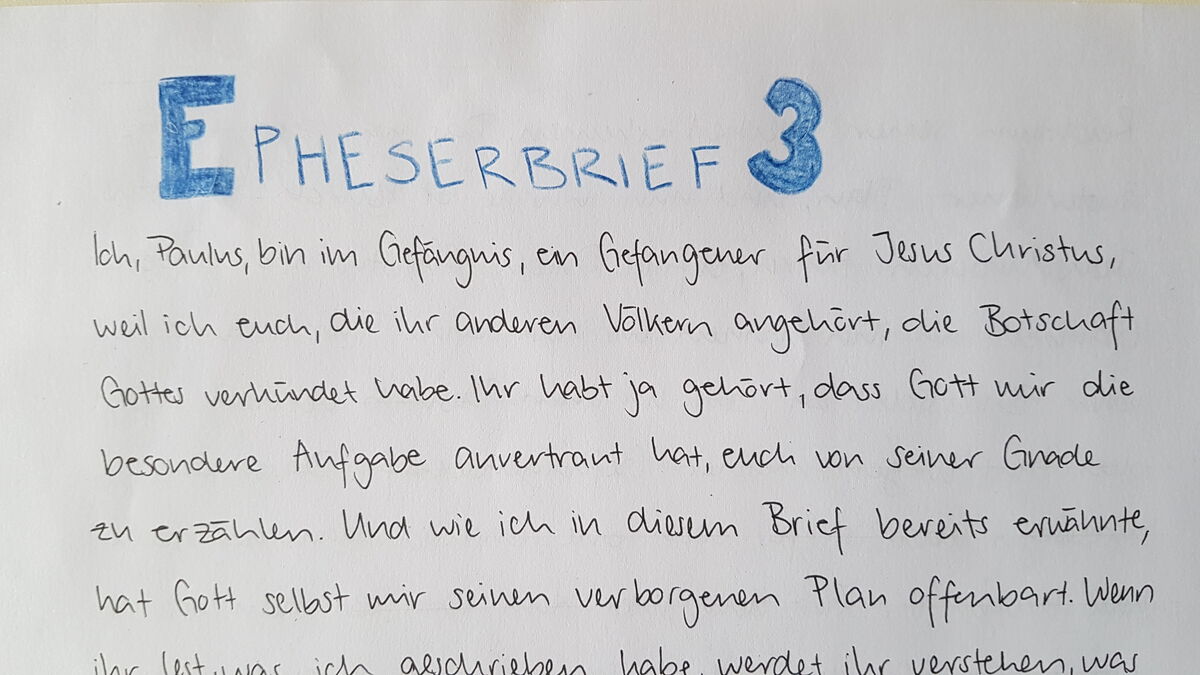 EPHESERBRIEF 3
Ich, Paulus, bin im Gefängnis, ein Gefangener für Jesus Christus,
weil ich euch, die ihr anderen Völkern angehört, die Botschaft
Gottes verkündet habe. Ihr habt ja gehört, dass Gott mir die
besondere Aufgabe anvertraut hat, euch von seiner Gnade
zu erzählen. Und wie ich in diesem Brief bereits erwähnte,
hat Gott selbst mir seinen verborgenen Plan offenbart. Wenn
ihr lest, was ich geschrieben habe, werdet ihr verstehen, was